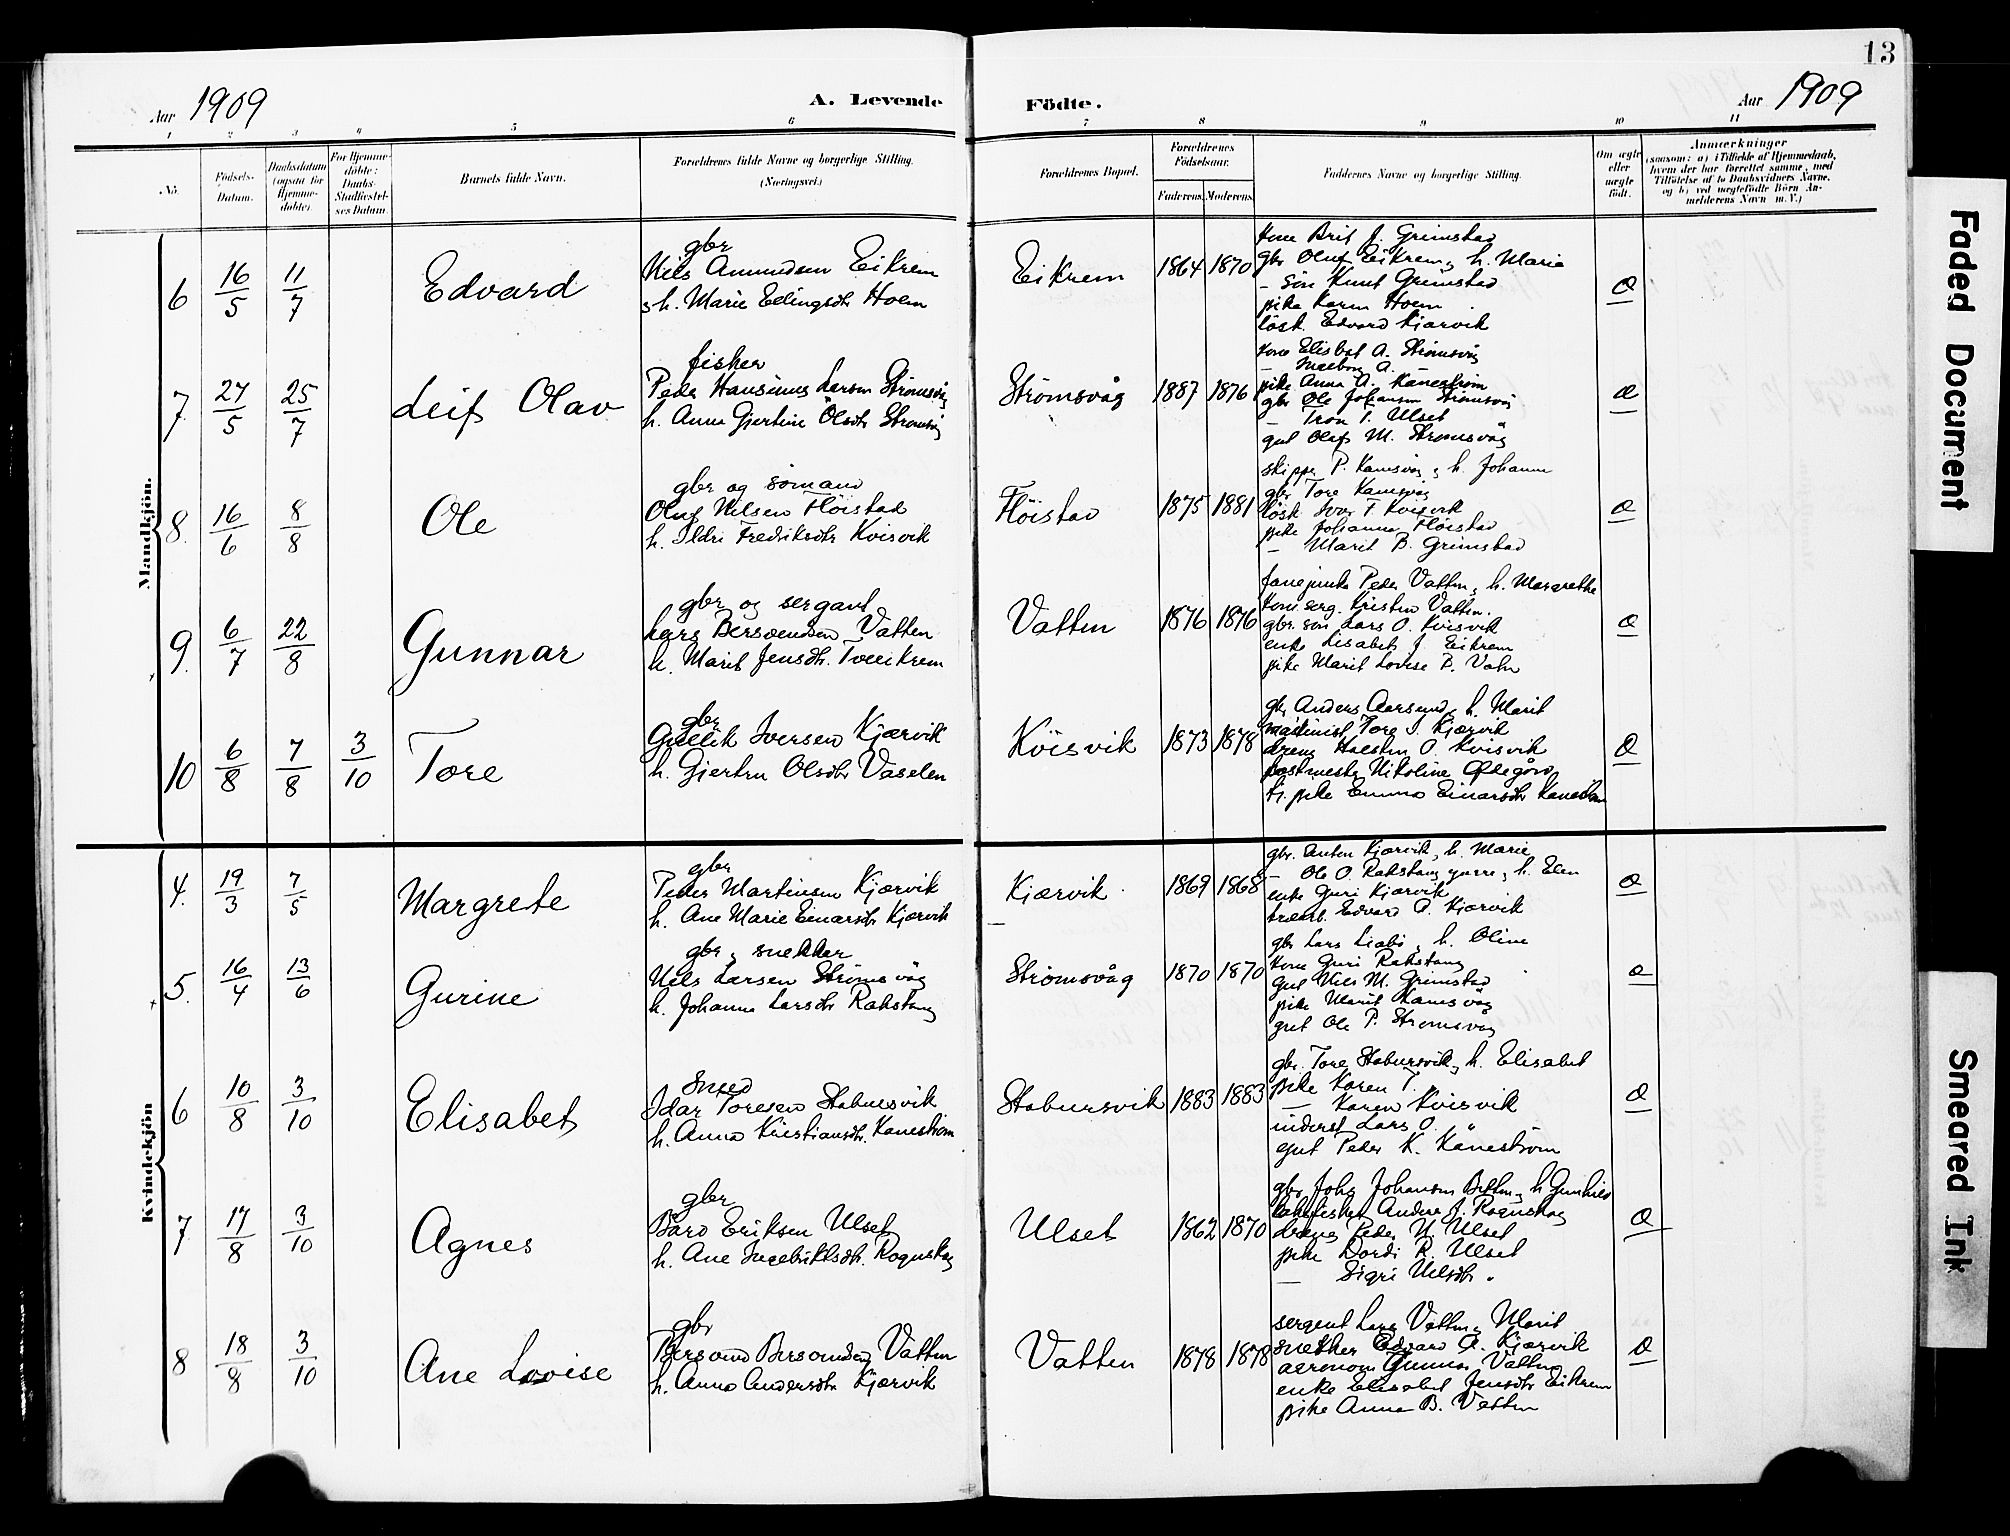 13
Aar 1909
A. Levende Födte.
Aar 1909
1 2 3 4 5 6 7 8 9 10 11
No.
Födsels-Datum.
Daabsdatum (ogsaa for Hjemmedöbte).
For Hjemmedöbte: Daabs-Stadfæstelses Datum.
Barnets fulde Navn.
Forældrenes fulde Navne og borgerlige Stilling. (Næringsvei.)
Forældrenes Bopæl.
Forældrenes Födselsaar.
Faderens. Moderens.
Faddernes Navne og borgerlige Stilling.
Om ægte eller uægte födt.
Anmærkninger
(saasom: a) i Tilfælde af Hjemmedaab, hvem der har forrettet samme, med Tilföielse af to Daabsvidners Navne, og b) ved uægtefödte Börn Anmelderens Navn m. V.)
Mandkjön.
6 16/5 11/7 Edvard
gbr
Nils Amundsen Eikrem
h. Marie Edingsdtr Hoem
Eikrem 1864 1870
kone Brit J. Grimstad
gbr Oluf Eikrem, h. Marie
– sön Knut Grimstad
pike Karen Hoem
lösk. Edvard Kjørvik
7 27/5 25/7 Leif Olav
fisker
Peder Hansinus Larsen Strömsvåg
h. Anna Gjertine Olsdtr Strömsvåg
Strömsvåg 1887 1876
kone Elisbet A. Strömsvåg
– Ingeborg A.
pike Anna A. Kaneström
gbr Ole Johansen Strömsvåg
– Tron T. Ulset
gut Olaf M. Strömsvåg
8. 16/6 8/8 Ole
gbr og sömand
Oluf Nilsen Flöistad
h. Ildri Fredriksdtr Kvisvik
Flöistad 1875 1881
skipper P. Kamsvåg, h. Johanna
gbr Tore Kamsvåg
lösk Ivar F. Kvisvik
pike Johanna Flöistad
– Marit B. Grimstad
9. 6/7 22/8 Gunnar
gbr og sergant
Lars Bersvendsen Vatten
h. Marit Jensdtr. Tveeikrem
Vatten 1876 1876
fanejunker Peder Vatten, h. Margrethe
kom.serg. Kristen Vatten.
gbr. sön Lars O. Kvisvik
enke Lisabet J. Eikrem
pike Marit Lovise P. Vatn
10 6/8 7/8 3/10 Tore
gbr
Gullik Iversen Kjørvik
h. Gjertru Olsdtr Vaselen
Kvisvik 1873 1878
gbr Anders Aarsund, h. Marit
maskinist Tore I. Kjørvik
dreng Halsten O. Kvisvik
postmester Nikoline Ødegård
tj. pike Emma Einarsdtr Kaneström
Kvindekjön
4. 19/3 7/5 Margrete
gbr
Peder Martinsen Kjørvik
h. Ane Marie Einarsdtr Kjørvik
Kjørvik 1869 1868
gbr. Anton Kjørvik, h. Marie
– Ole O. Rakstang yngre, h. Elen
enke Guri Kjørvik
træarb. Edvard A. Kjørvik
5. 16/4 13/6 Gurine
gbr, snekker
Nils Larsen Strömsvåg
h. Johanna Larsdtr Rakstang
Strömsvåg 1870 1870
gbr Lars Liabö, h. Oline
kone Guri Rakstang
gut Nils M. Grimstad
pike Marit Kamsvåg
gut Ole P. Strömsvåg
6 10/8 3/10 Elisabet
smed
Idar Toresen Stabursvik
h. Anna Kristiansdtr. Kaneström
Stabursvik 1883 1883
gbr. Tore Stabursvik, h. Elisabet
pike Karen T.
– Karen Kvisvik
inderst Lars O. "
gut Peder K. Kåneström
7. 17/8 3/10 Agnes
gbr
Bård Eriksen Ulset
h. Ane Ingebriktsdtr. Rognskog
Ulset 1862 1870
gbr John Johansen Botten, h Gunhild
Anders J. Rognskog
dreng Peder N. Ulset
pike Dordi R. Ulset
– Sigri Nilsdtr.
8 18/8 3/10 Ane Lovise
gbr
Bersvend Bersvendsen Vatten
h. Anna Andersdtr Kjørvik
Vatten 1878 1878
sergent Lars Vatten, Marit
snekker Edvard A. Kjørvik
agronom Gunnar Vatten
enke Elisabet Jensdtr Eikrem
pike Anna B. Vatten
Faded Document
Smeared Ink